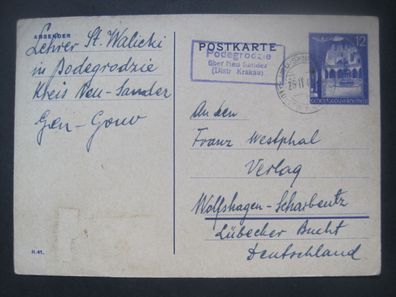 ABSENDER
Lehrer St. Walicki
in Podegrodzie
Kreis Neu-Sander
Gen-Gouv
POSTKARTE
Podegrodzie
über Neu Sandez
(Distr. Krakau)
12
An den
Franz Westphal
Verlag
Wolfshagen-Scharbeutz
Lübecher Bucht
Deutschland